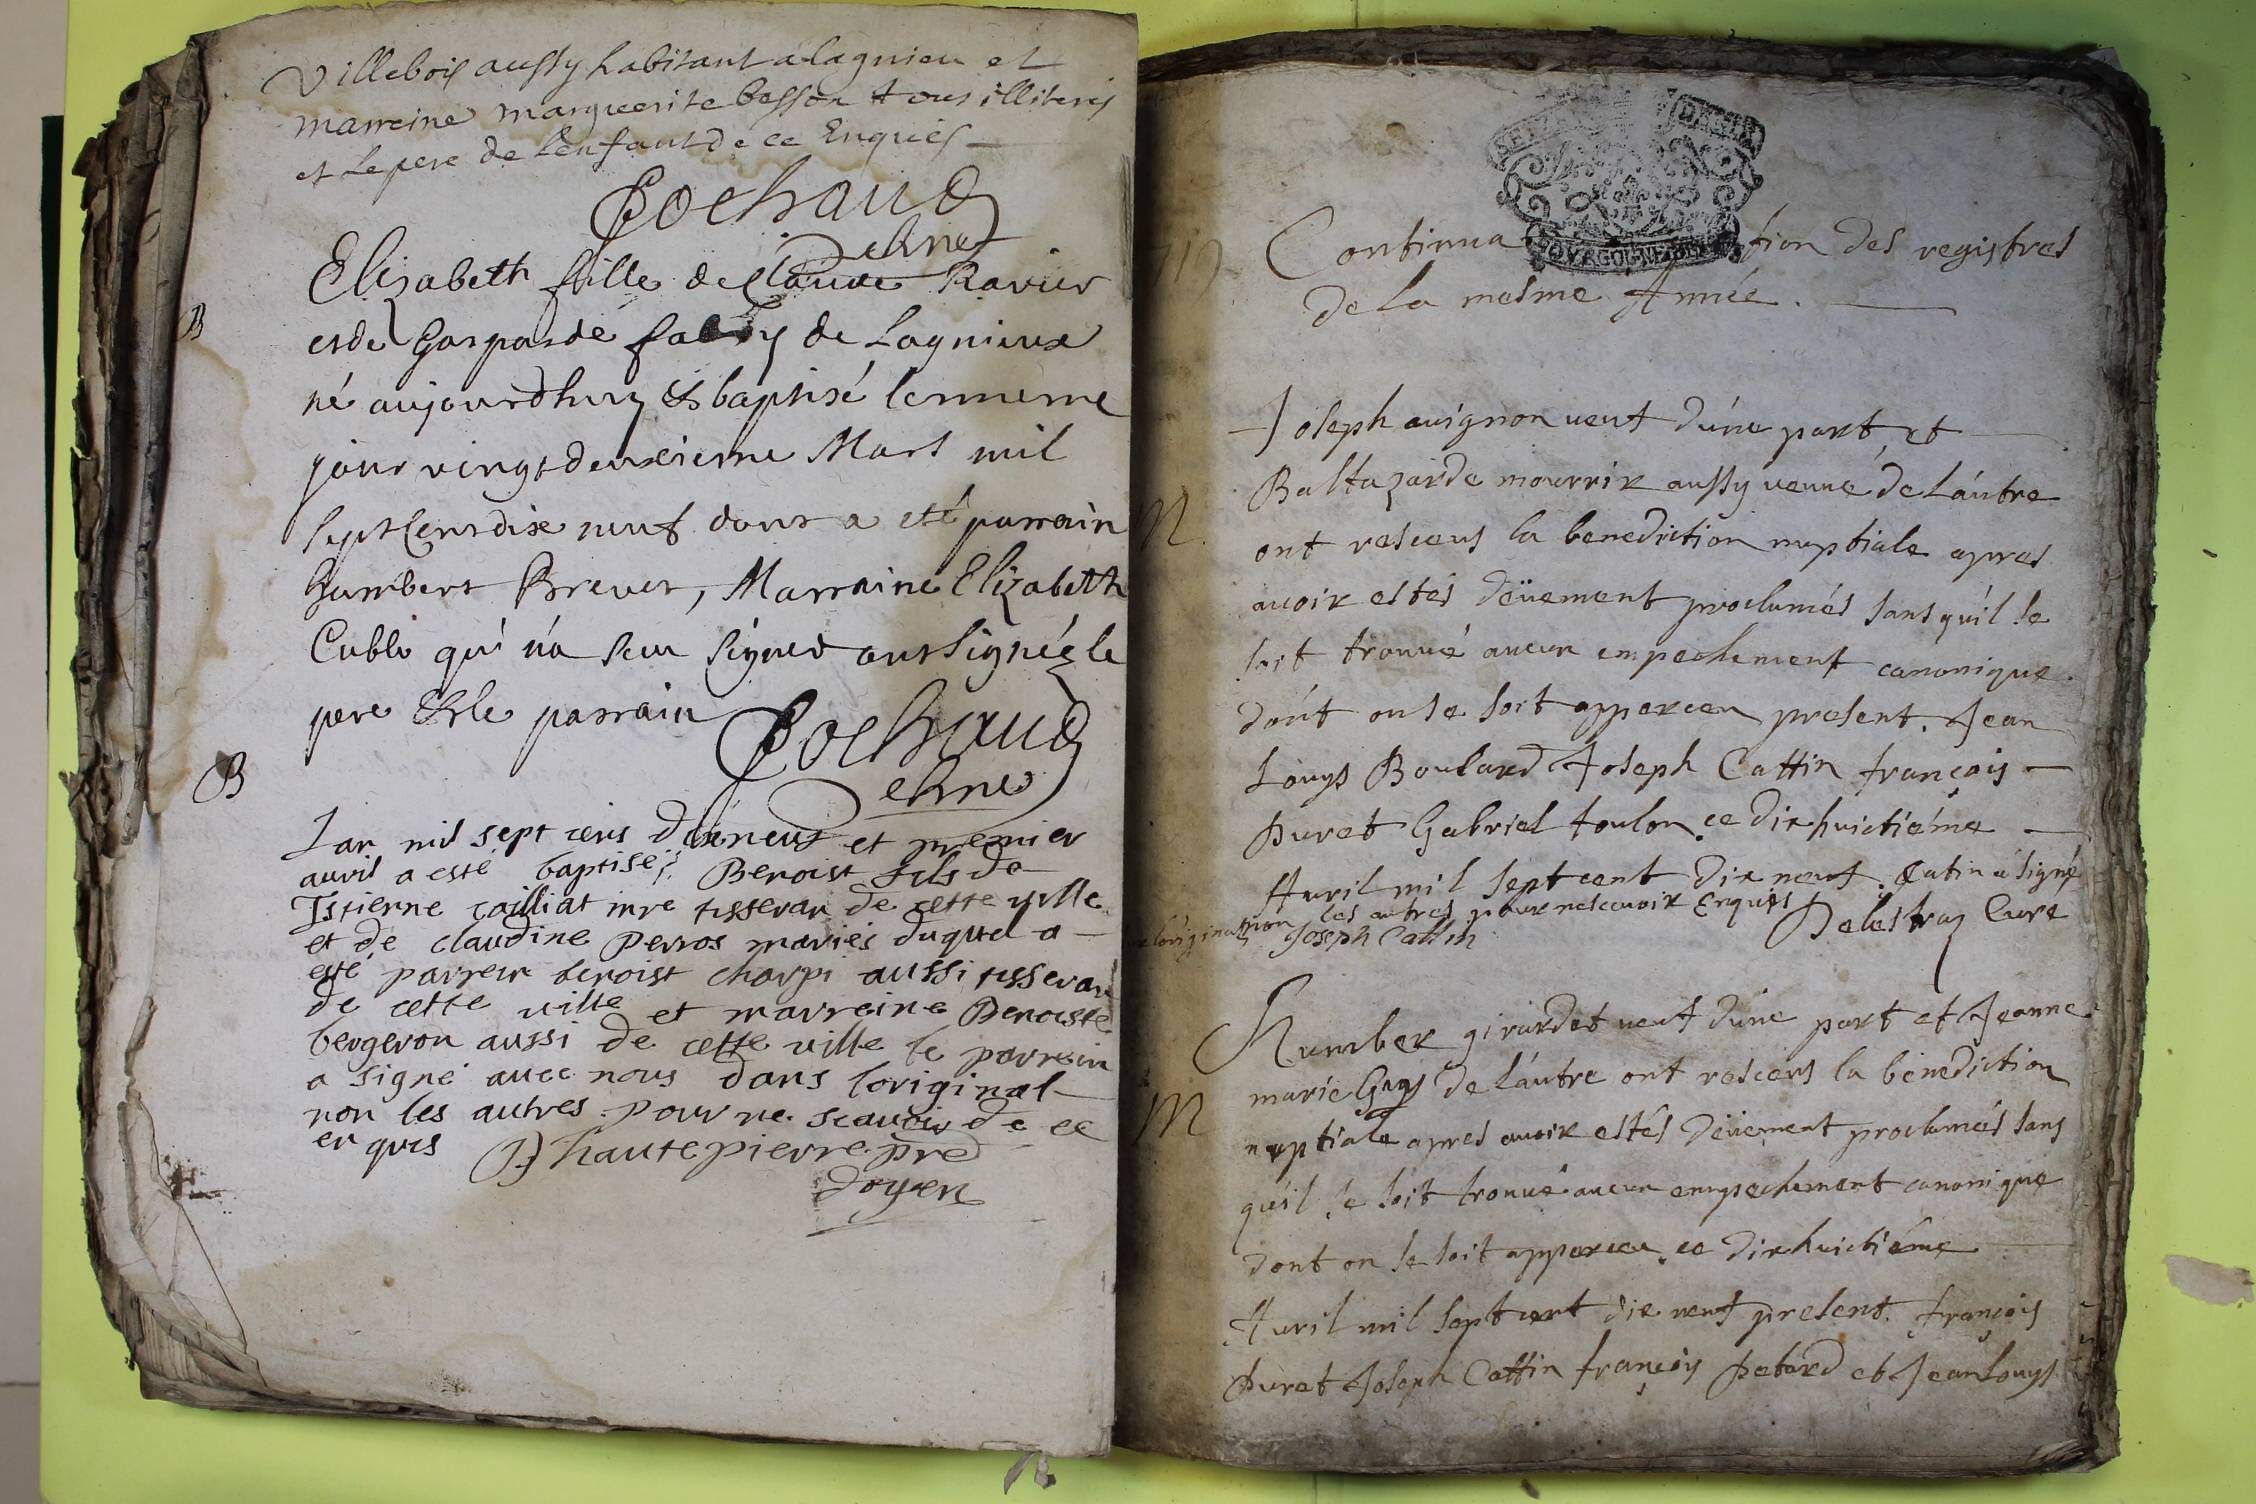 Villebois aussy habitant a lagnieu et
marreine marguerite besson tous illiterés
et le pere de lenfant de ce Enquis
Cochaud
chne
B
Elizabeth fille de Claude Ravier
et de Gasparde de Lagnieux
né aujourdhuy & baptisé le meme
jour vingt deuxieme Mars mil
sept cens dix neuf dont a eté parrain
humbert Brevet, Marraine Elizabeth
qui n'a sceu signer ont signéz le
pere & le parrain
Cochaud
chne
B
Lan mil sept cens dixneuf et premier
avril a esté baptisé Benoist fils de
Estienne cailliat mre tisseran de cette ville
et de claudine perros mariés duquel a
esté parrein benoist charpi aussi tisseran
de cette ville et marreine Benoiste
bergeron aussi de cette ville le parrein
a signé avec nous dans loriginal
non les autres pour ne scavoir de ce
enquis hautepierre pre
doyen
Continuation des registres
de la mesme Année.
Joseph auignon veuf d'une part et
M
Baltazarde mourrir aussy veuue de l'autre
ont resceus la benediction nuptiale apres
auoir estés düement proclamés sans qu'il se
soit trouué aucun empechement canonique
dont on se soit apperceu present. Jean
Louys Boulard Joseph Cattin françois
Puret Gabriel toulon ce dix huictiéme
Auril mil sept cent dix neuf. Catin a signé
loriginal non les autres pour ne scauoir Enquis
Joseph Cattin Delestraz Curé
Humber girardet veuf d'une part et Jeanne
marie Guy de l'autre ont resceus la benediction
M
nuptiale apres auoir estés düement proclamés sans
qu'il se soit trouué aucun empechement canonique
dont on se soit apperceu ce dix huictiéme
Auril mil sept cent dix neuf present. françois
Puret Joseph Cattin françois Petard et Jean Louys